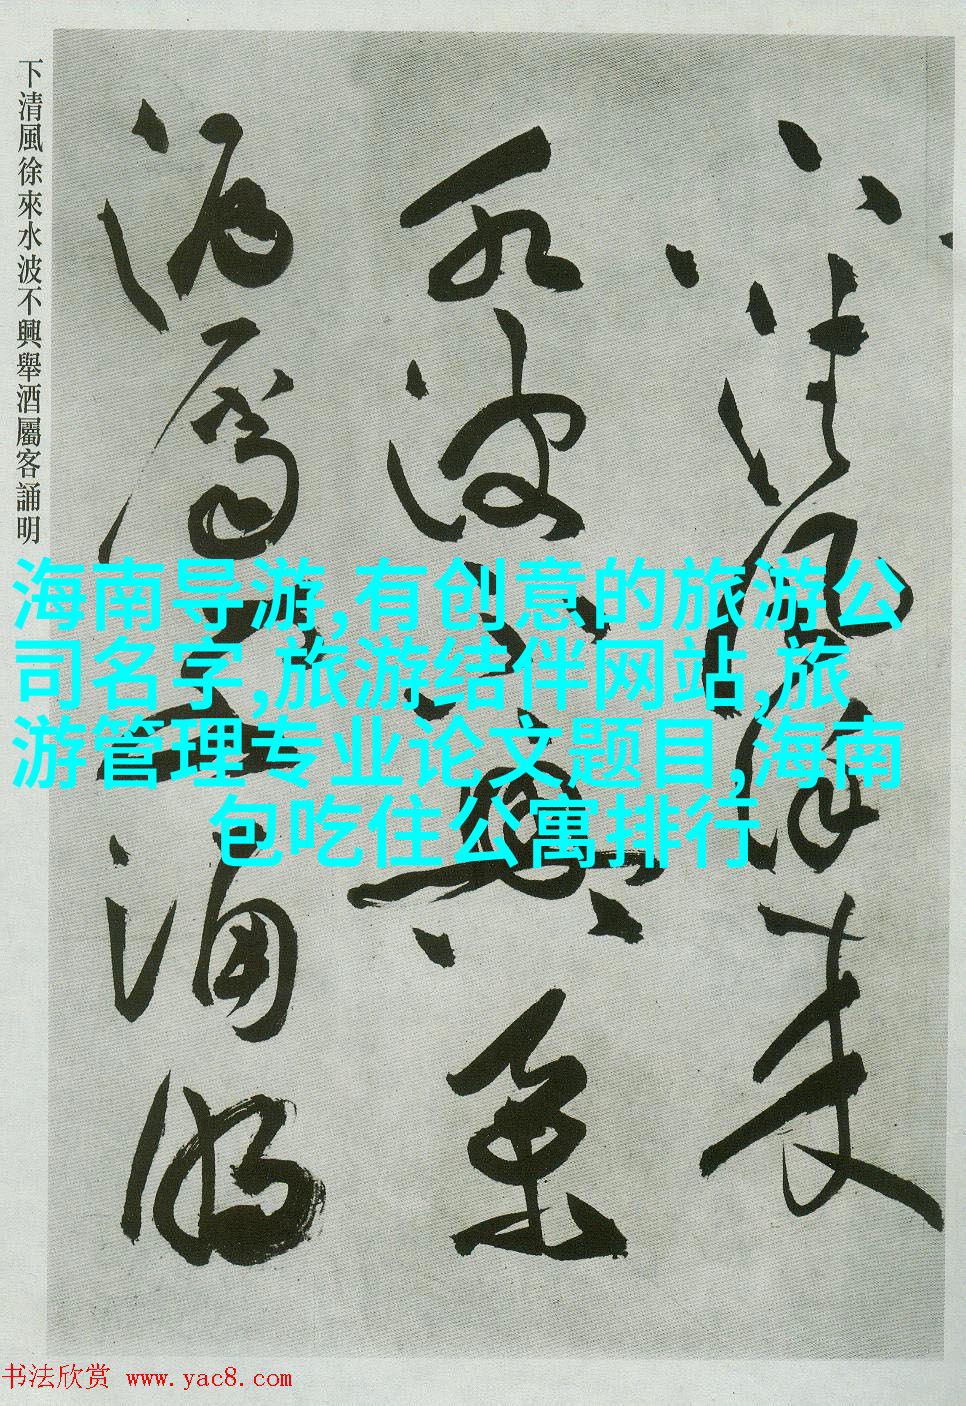 下清風徐來水波不興舉酒屬客誦明
下清風徐來
水波不興舉
酒屬客誦明
海南导游,有创意的旅游公
司名字,旅游结伴网站,旅
游管理专业论文题目,海南
包吃住公寓排行
书法欣赏 www.yac8.com